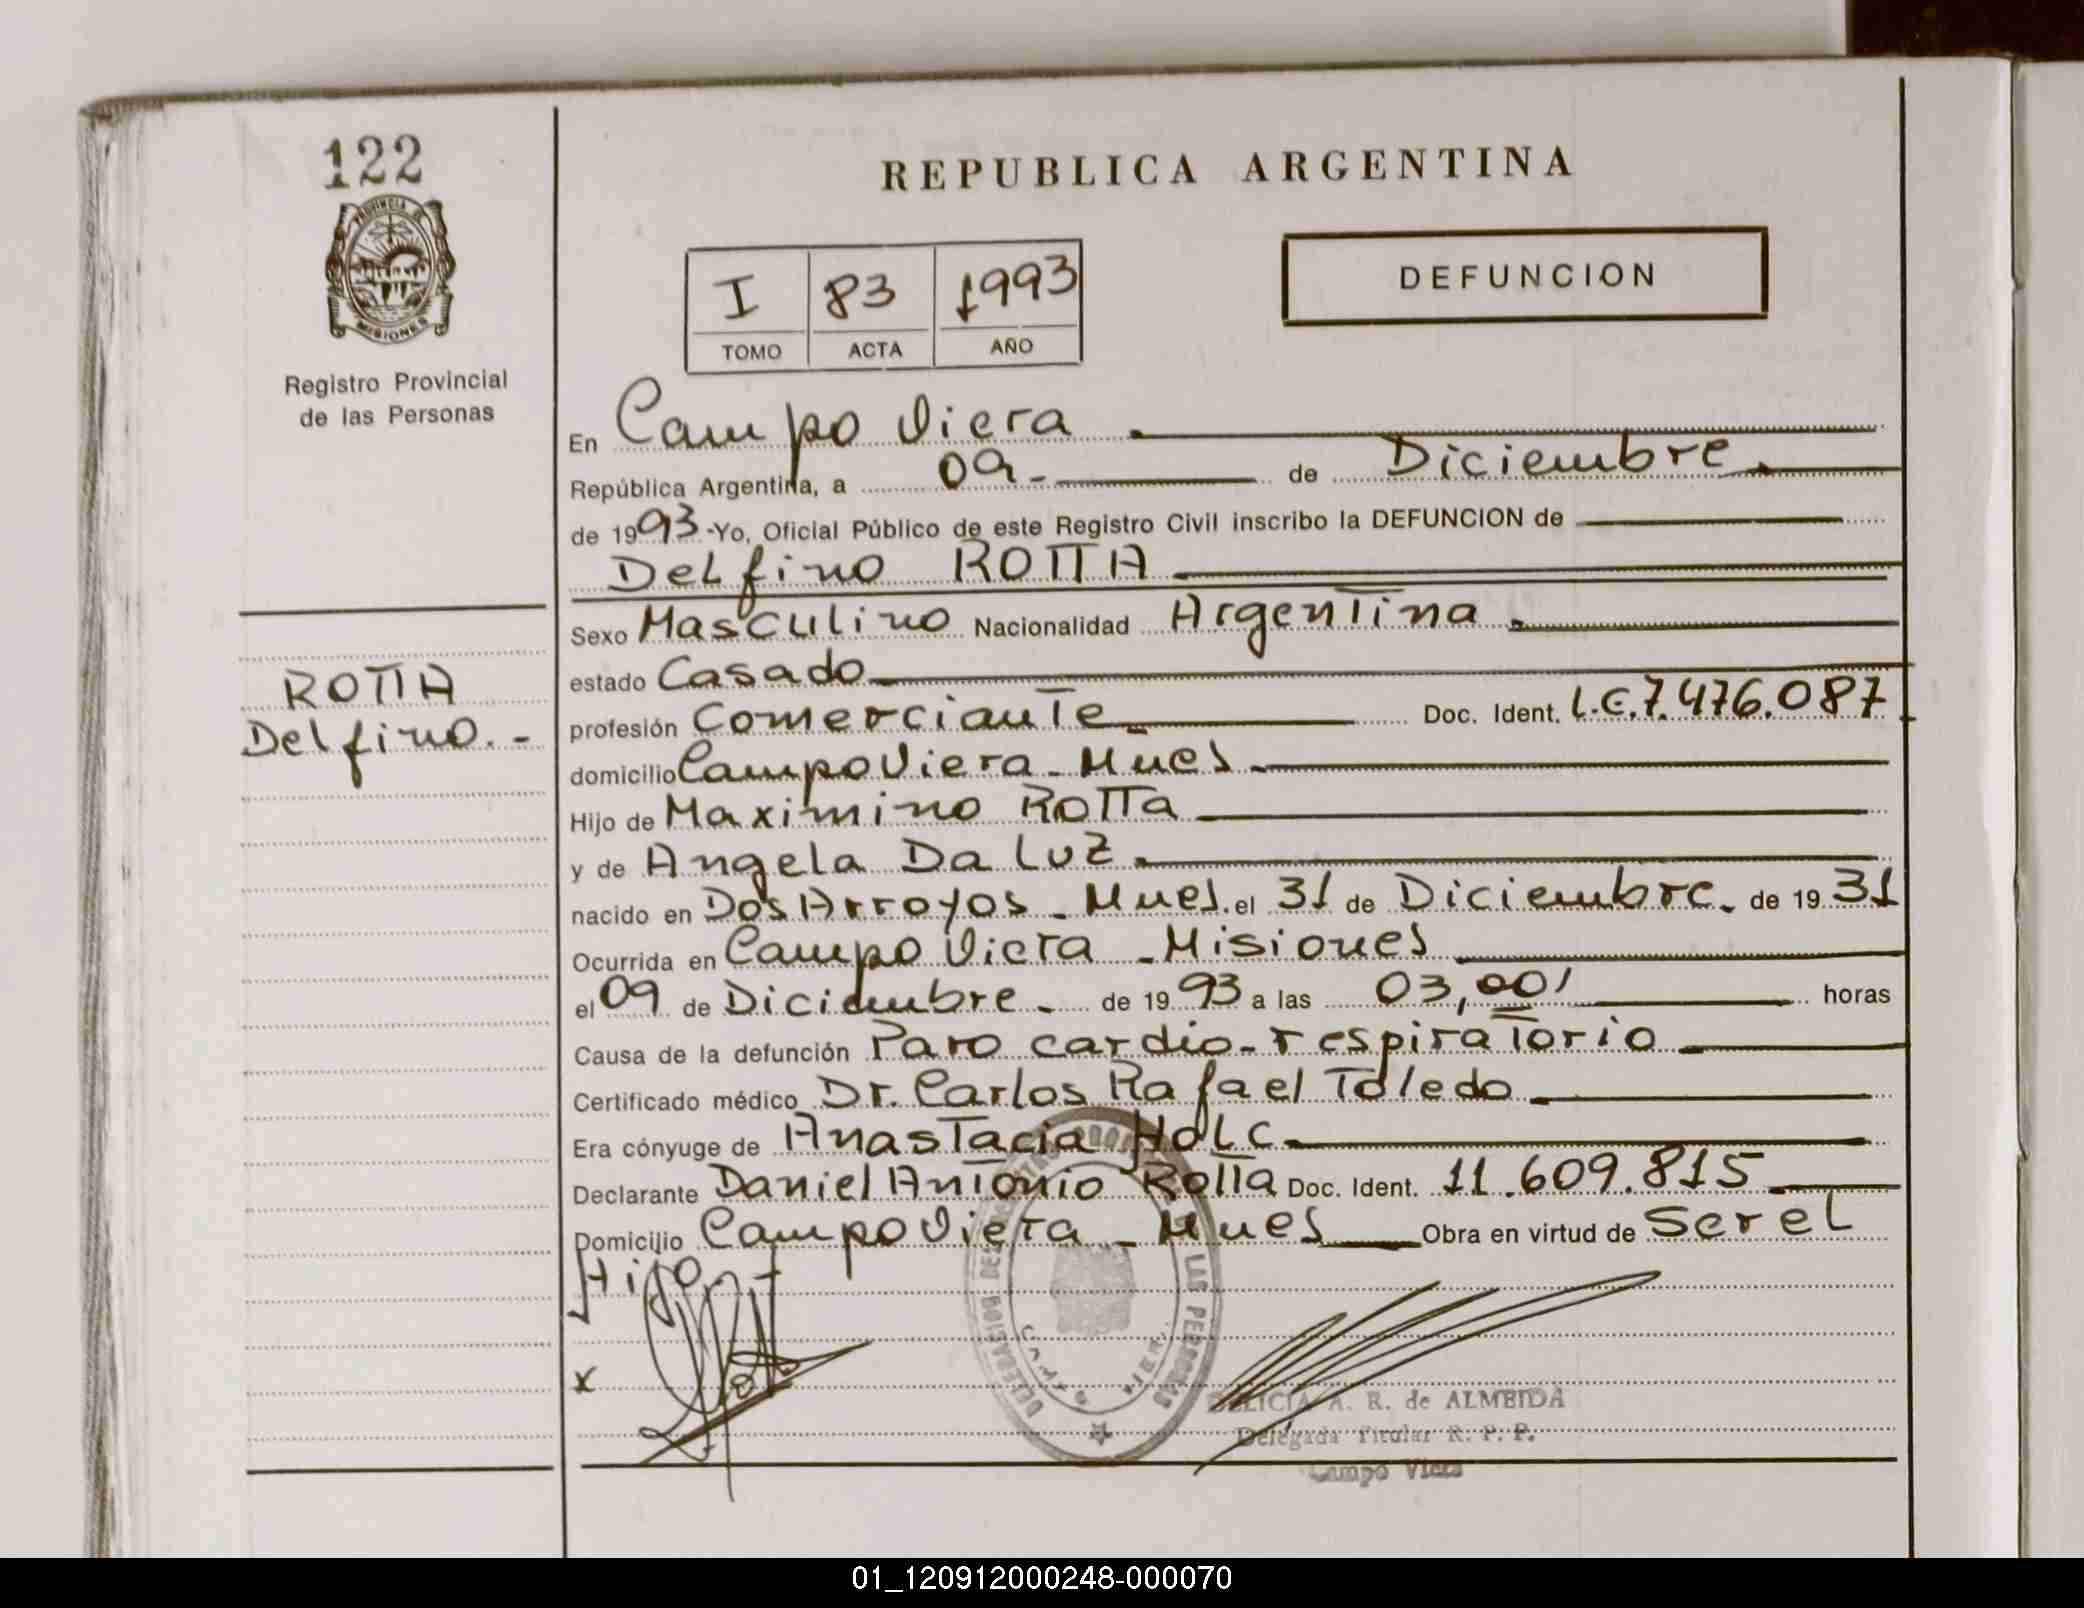 122
PROVINCIA DE
MISIONES
Registro Provincial
de las Personas
ROTTA
Delfino.-
REPUBLICA ARGENTINA
I 83 1993
TOMO ACTA AÑO
DEFUNCION
En Campo Viera
República Argentina, a 09- de Diciembre.
de 1993-Yo, Oficial Público de este Registro Civil inscribo la DEFUNCION de
Delfino ROTTA
Sexo Masculino Nacionalidad Argentina.
estado Casado
profesión Comerciante Doc. Ident. L.E.7.476.087
domicilio Campo Viera - Mnes
Hijo de Maximino Rotta
y de Angela Da Luz.
nacido en Dos Arroyos - Mnes. el 31 de Diciembre. de 1931
Ocurrida en Campo Viera - Misiones
el 09 de Diciembre. de 1993 a las 03,00' horas
Causa de la defunción Paro cardio-respiratorio
Certificado médico Dr. Carlos Rafael Toledo
Era cónyuge de Anastacia Holc
Declarante Daniel Antonio Rotta Doc. Ident. 11.609.815
Domicilio Campo Viera - Mnes Obra en virtud de Ser el
Hijo.
x
LAS PERSONAS
A. R. de ALMEIDA
Delegada Titular R. P. P.
Campo Viera
01_120912000248-000070